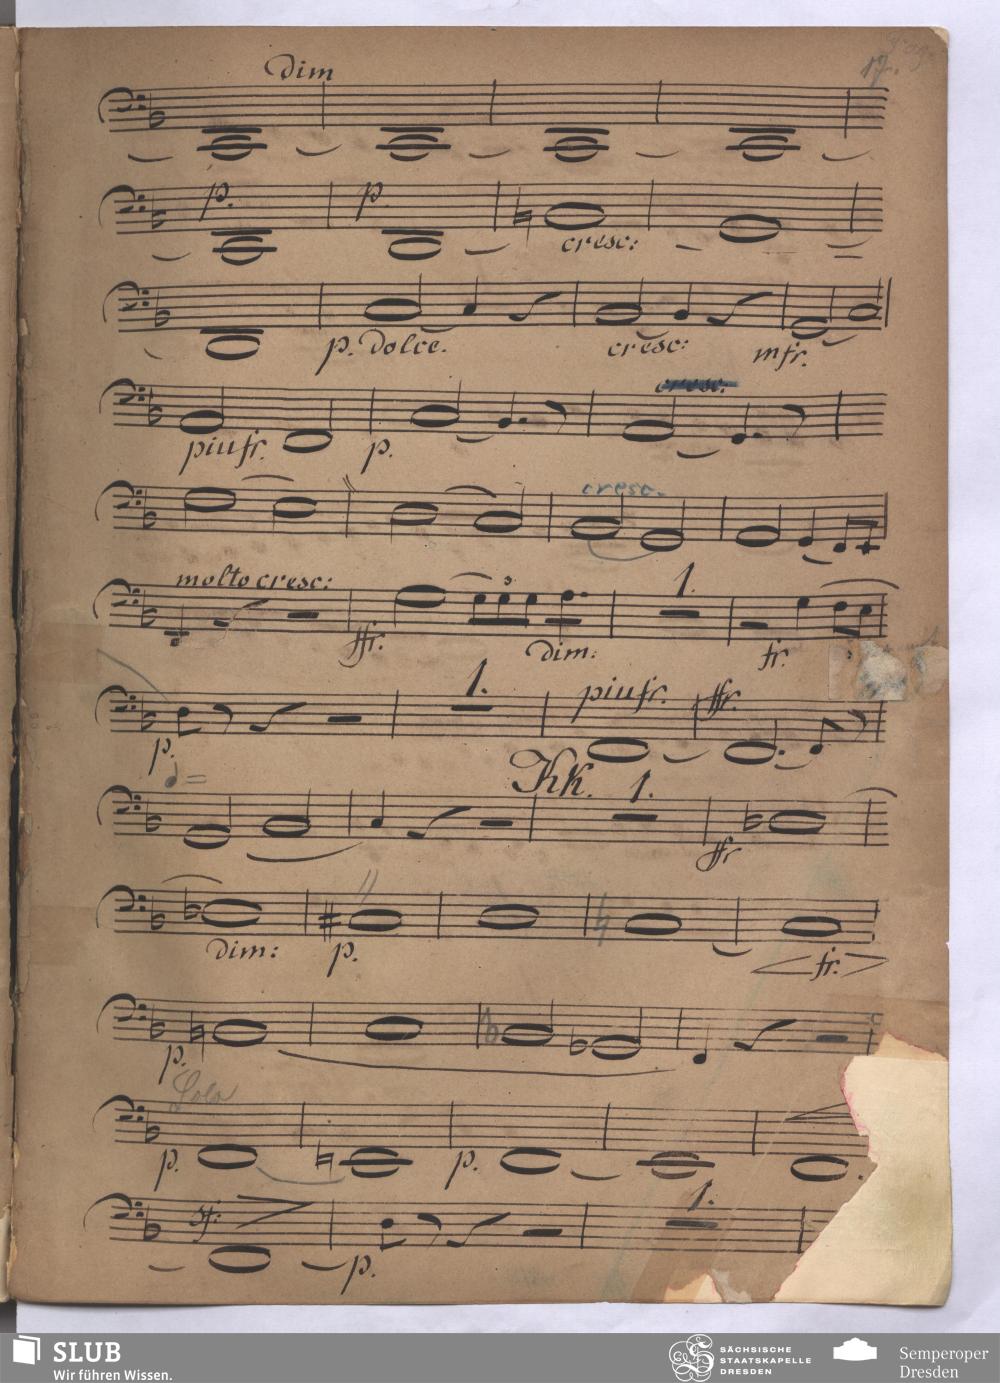 17.
Dim
p. p cresc:
p. dolce. cresc: mfr.
cresc:
piufr. p.
cresc.
molto cresc:
3
1.
ffr. dim: fr.
1. piufr. ffr.
p.
Kk. 1.
ffr
dim: p. fr.
p.
Solo
p. p.
sf: 1.
p.
SLUB
Wir führen Wissen.
SÄCHSISCHE
STAATSKAPELLE
DRESDEN
Semperoper
Dresden